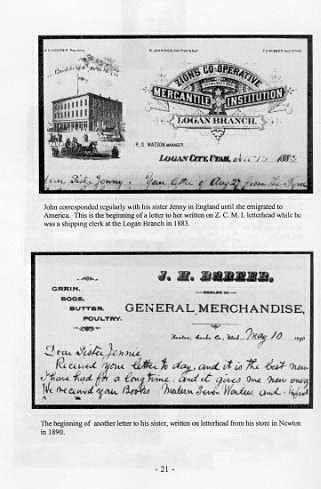 ZIONS CO-OPERATIVE
MERCANTILE INSTITUTION
LOGAN BRANCH.
MANAGER.
LOGAN CITY, UTAH, 1883
Dear Sister Jenny, Your letter of Aug 29 from the
John corresponded regularly with his sister Jenny in England until she emigrated to
America. This is the beginning of a letter to her written on Z. C. M. I. letterhead while he
was a shipping clerk at the Logan Branch in 1883.
DEALER IN
GRAIN,
EGGS,
BUTTER,
POULTRY.
GENERAL MERCHANDISE,
Newton, Cache Co., Utah, May 10 1890
Dear Sister Jennie
Received your letter to day, and it is the best news
I have had for a long time, and it gives me new
We received your Books Modern Seven Wonders and
The beginning of another letter to his sister, written on letterhead from his store in Newton
in 1890.
- 21 -